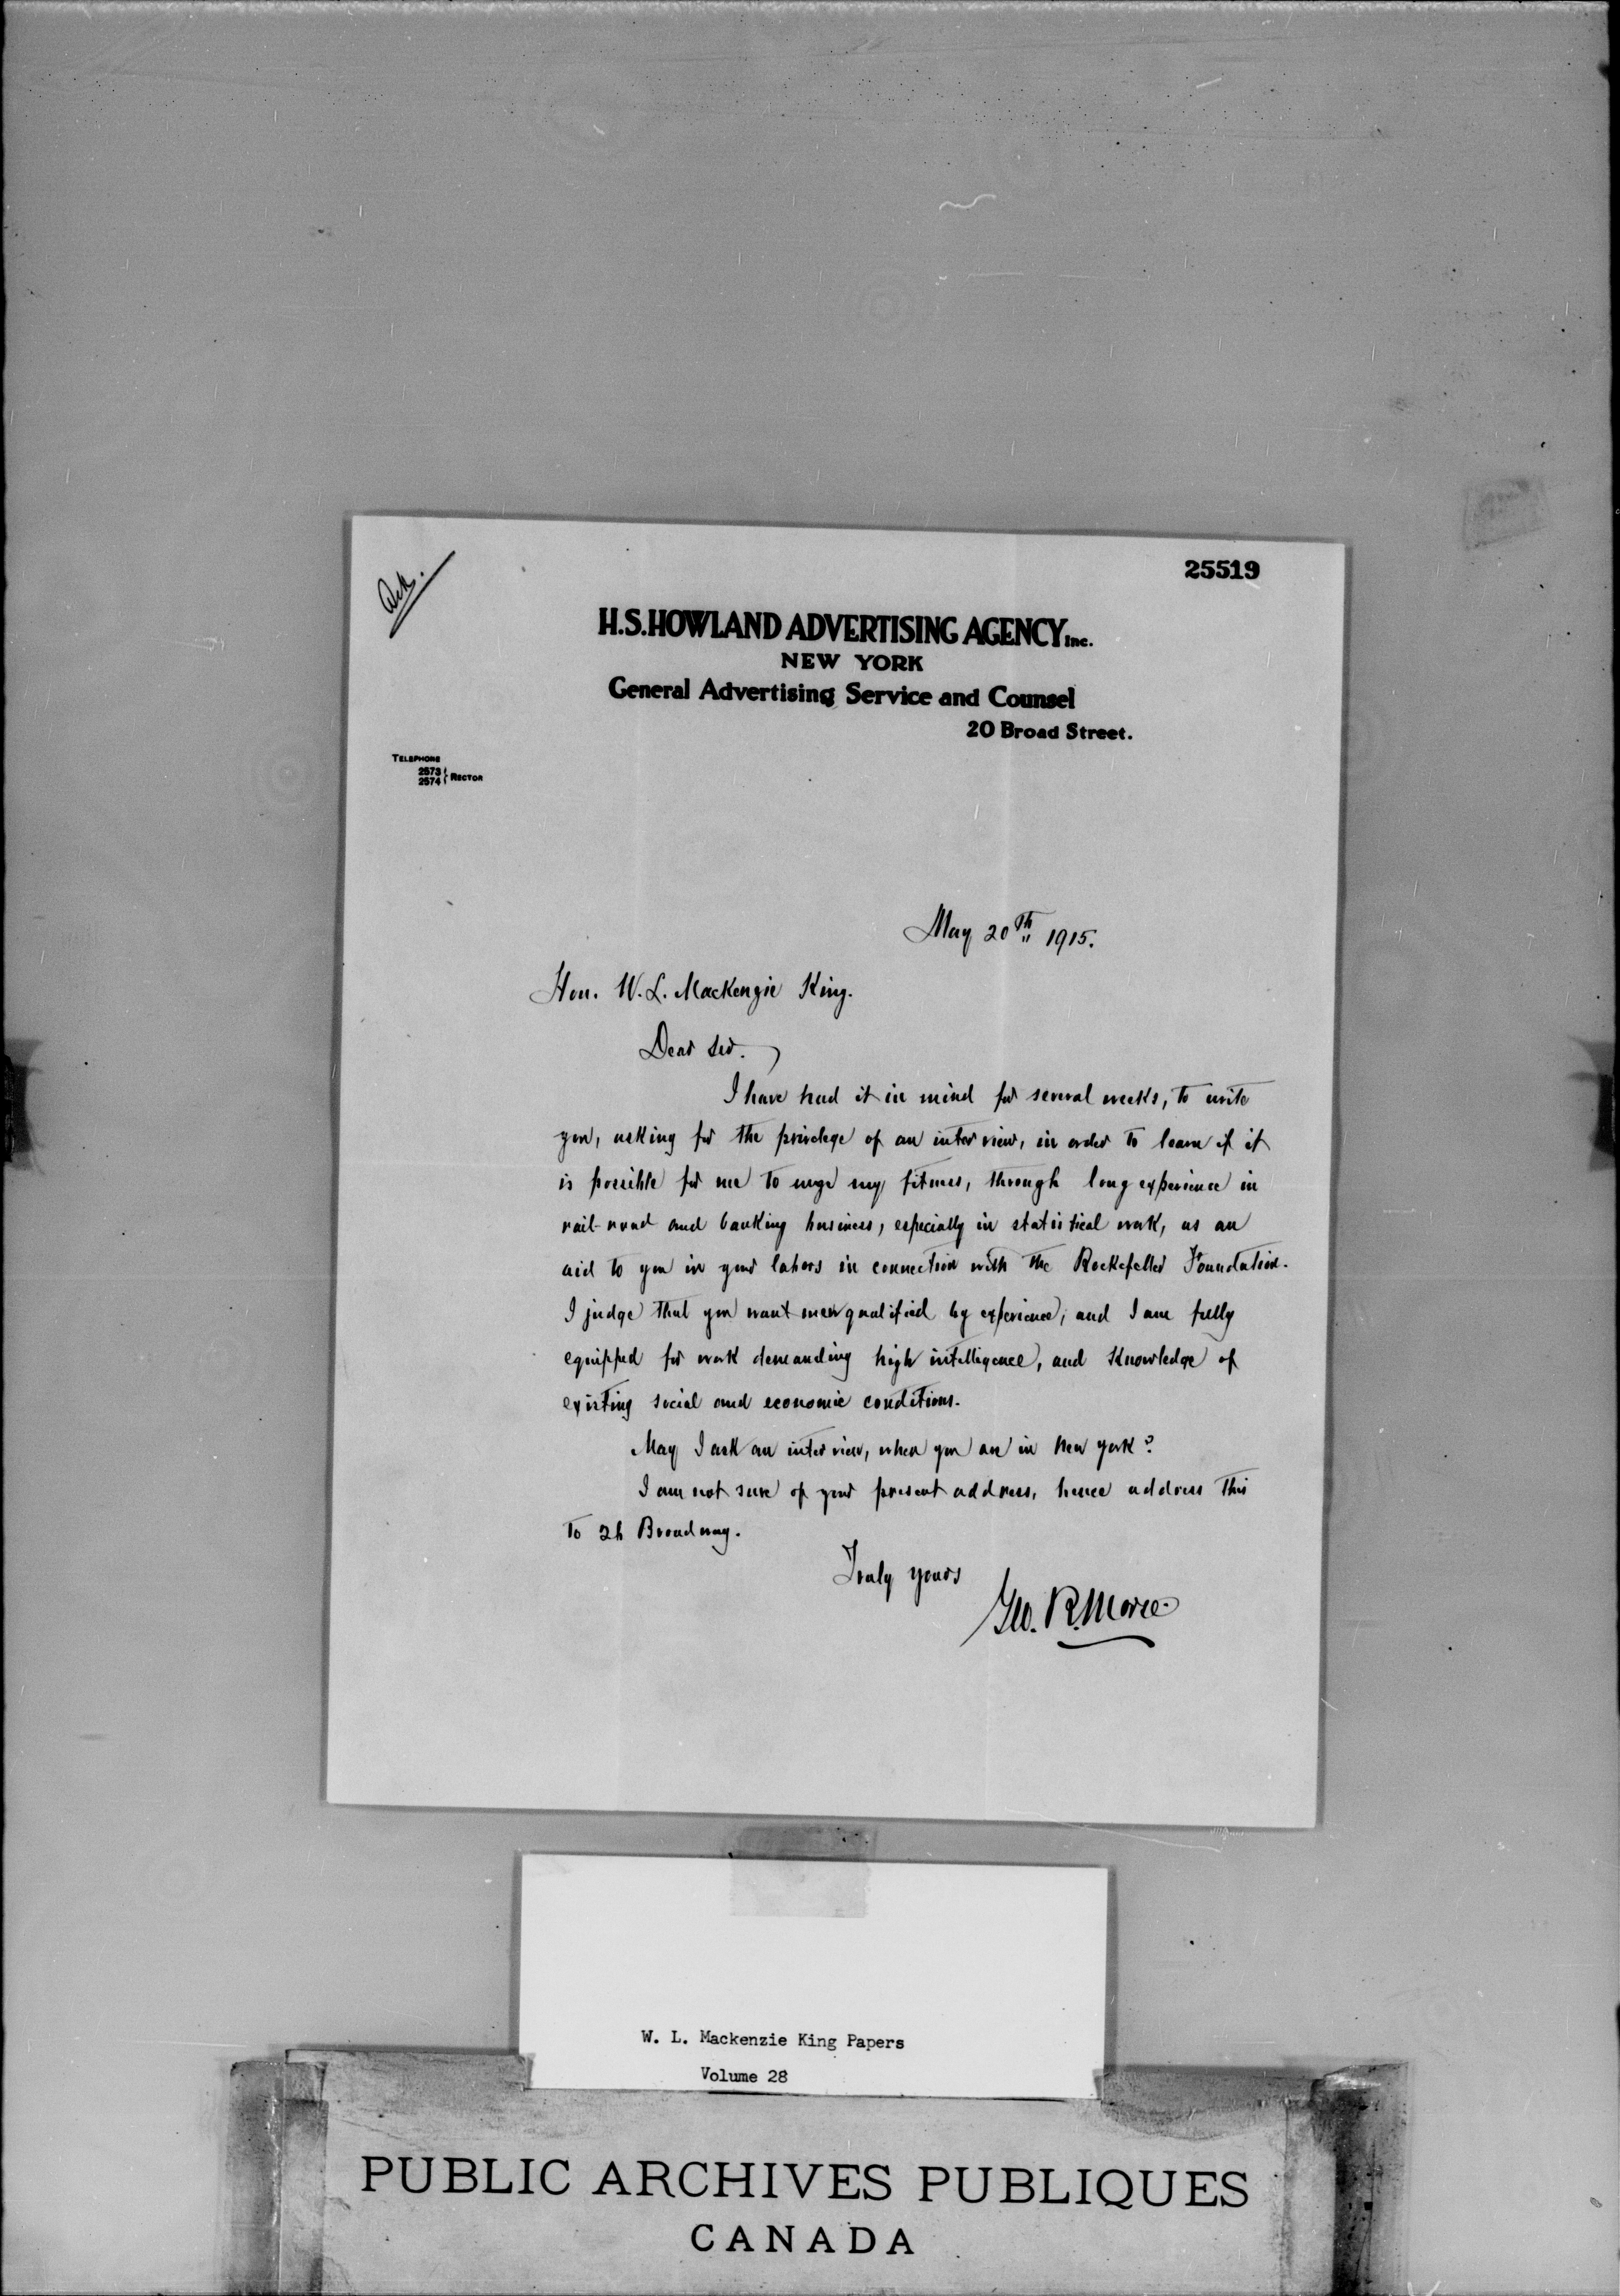 Ack.
25519
H.S. HOWLAND ADVERTISING AGENCY Inc.
NEW YORK
General Advertising Service and Counsel
20 Broad Street.
TELEPHONE
2573
2574 } RECTOR
May 20th 1915.
Hon. W. L. MacKenzie King.
Dear Sir.
I have had it in mind for several weeks, to write
you, asking for the privilege of an interview, in order to learn if it
is possible for me to urge my fitness, through long experience in
rail-road and banking business, especially in statistical work, as an
aid to you in your labors in connection with the Rockefeller Foundation.
I judge that you want men qualified by experience, and I am fully
equipped for work demanding high intelligence, and knowledge of
existing social and economic conditions.
May I ask an interview, when you are in New York?
I am not sure of your present address, hence address this
to 26 Broadway.
Truly yours
Geo. R. Morse.
W. L. Mackenzie King Papers
Volume 28
PUBLIC ARCHIVES PUBLIQUES
CANADA